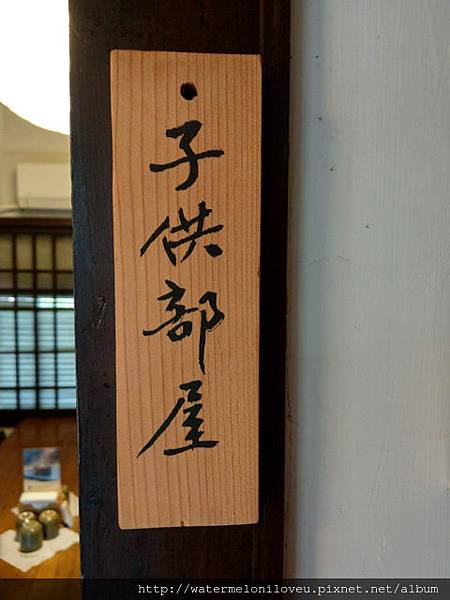 子供部屋
http://watermeloniloveu.pixnet.net/album